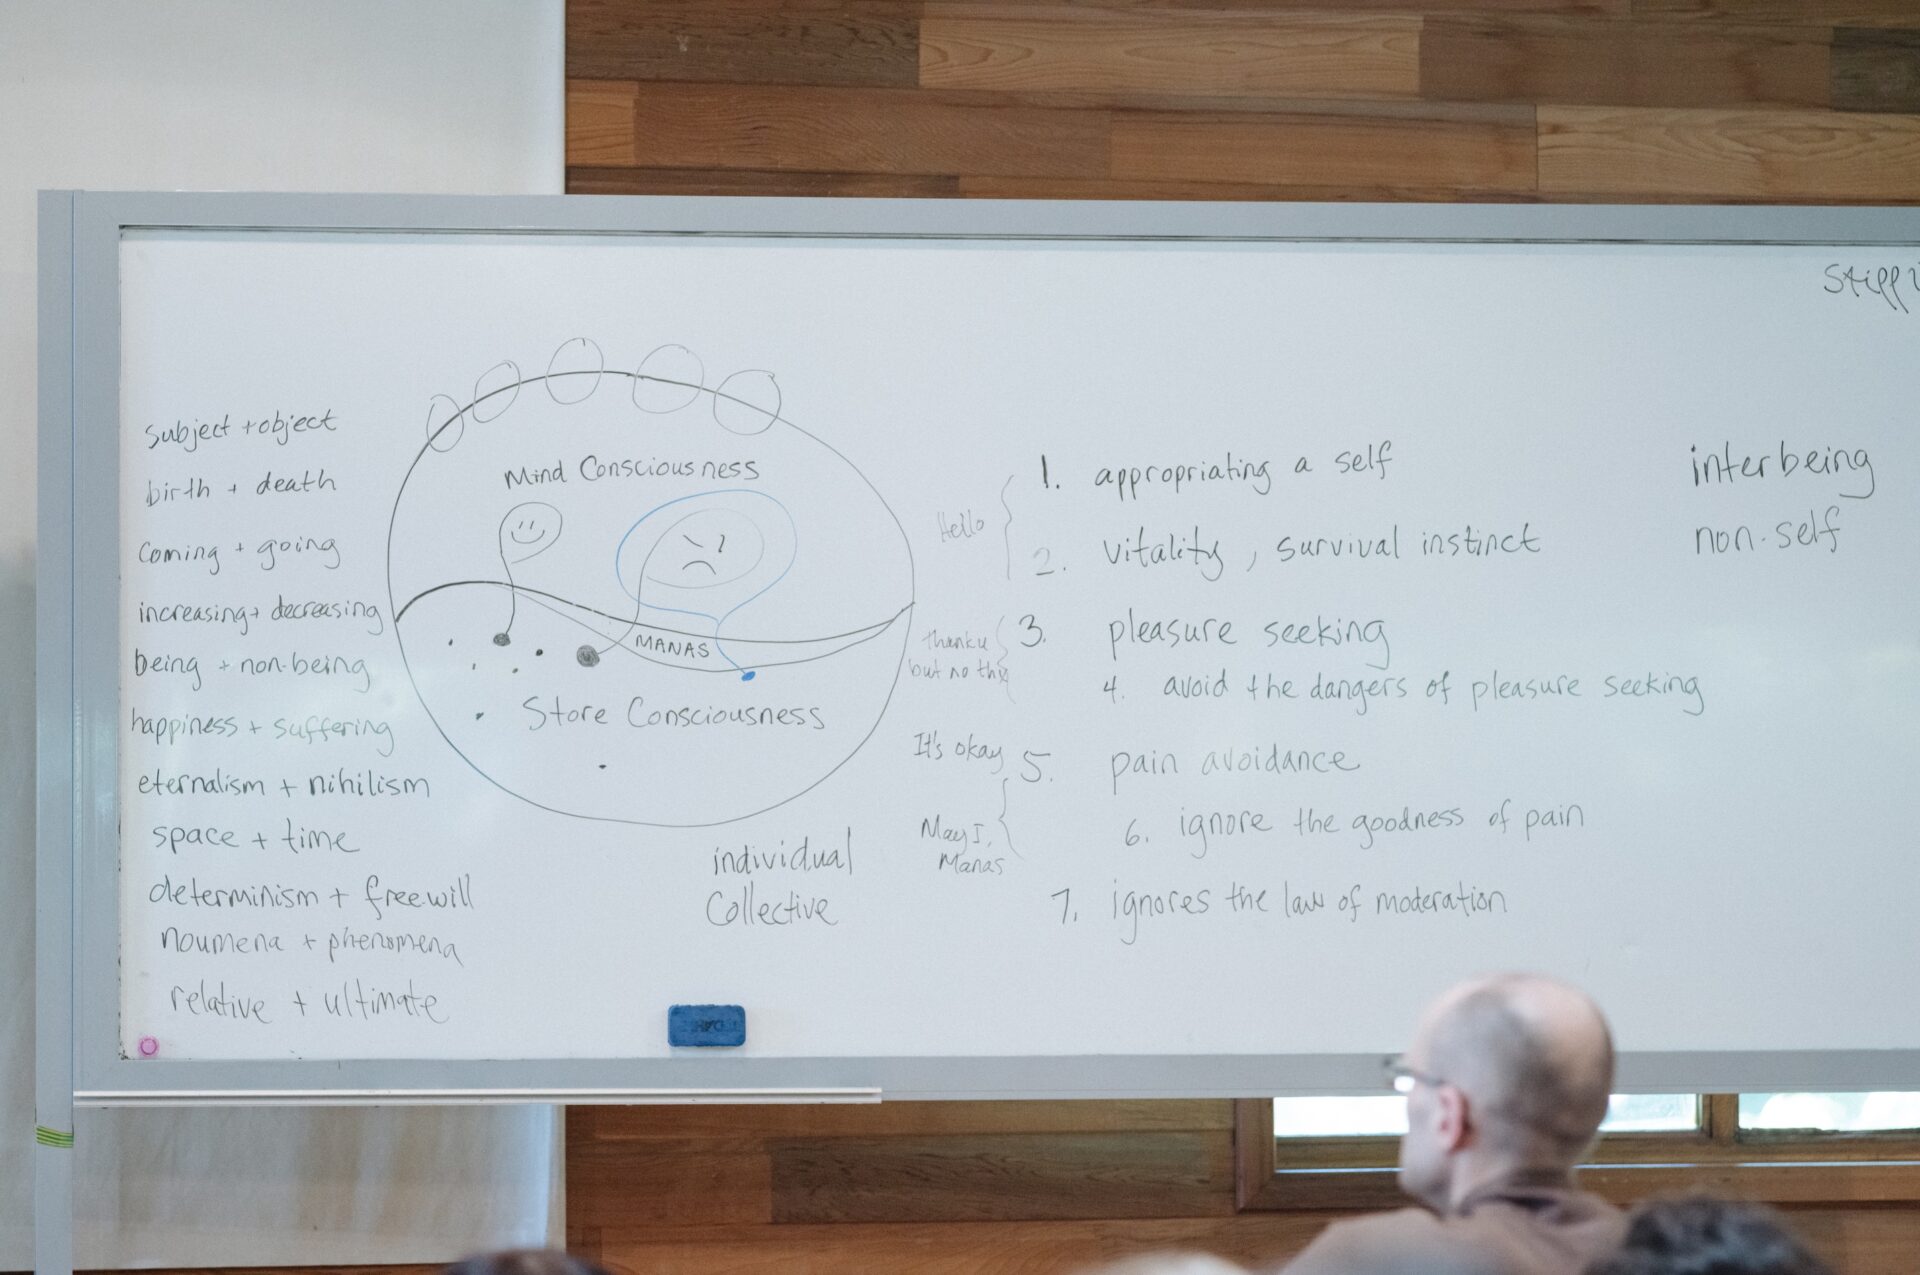 subject + object
birth + death
coming + going
increasing + decreasing
being + non-being
happiness + suffering
eternalism + nihilism
space + time
determinism + free will
noumena + phenomena
relative + ultimate
Mind Consciousness
MANAS
Store Consciousness
individual
Collective
Hello
thank u
but no
It's okay
May I,
Manas
1. appropriating a self
2. vitality, survival instinct
3. pleasure seeking
4. avoid the dangers of pleasure seeking
5. pain avoidance
6. ignore the goodness of pain
7. ignores the law of moderation
interbeing
non-self